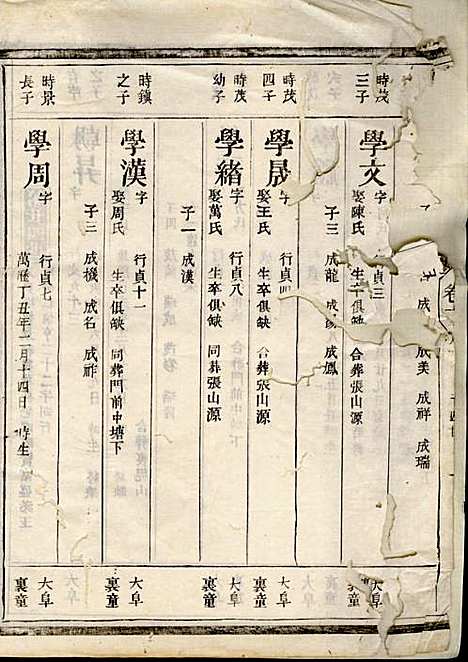 成美 成祥 成瑞
時茂
三子
學文 字
行貞三
娶陳氏 生卒俱缺 合葬張山源
子三 成龍 成鳳
大阜
裏童
時茂
四子
學晟 字
行貞四
娶王氏 生卒俱缺 合葬張山源
大阜
裏童
時茂
幼子
學緒 字 行貞八
娶萬氏 生卒俱缺 同葬張山源
子一 成漢
大阜
裏童
時鎮
之子
學漢 字 行貞十一
娶周氏 生卒俱缺 同葬門前中塘下
子三 成機 成名 成祚
大阜
裏童
時景
長子
學周 字 行貞七
萬曆丁丑年二月十四日 時生
大阜
裏童